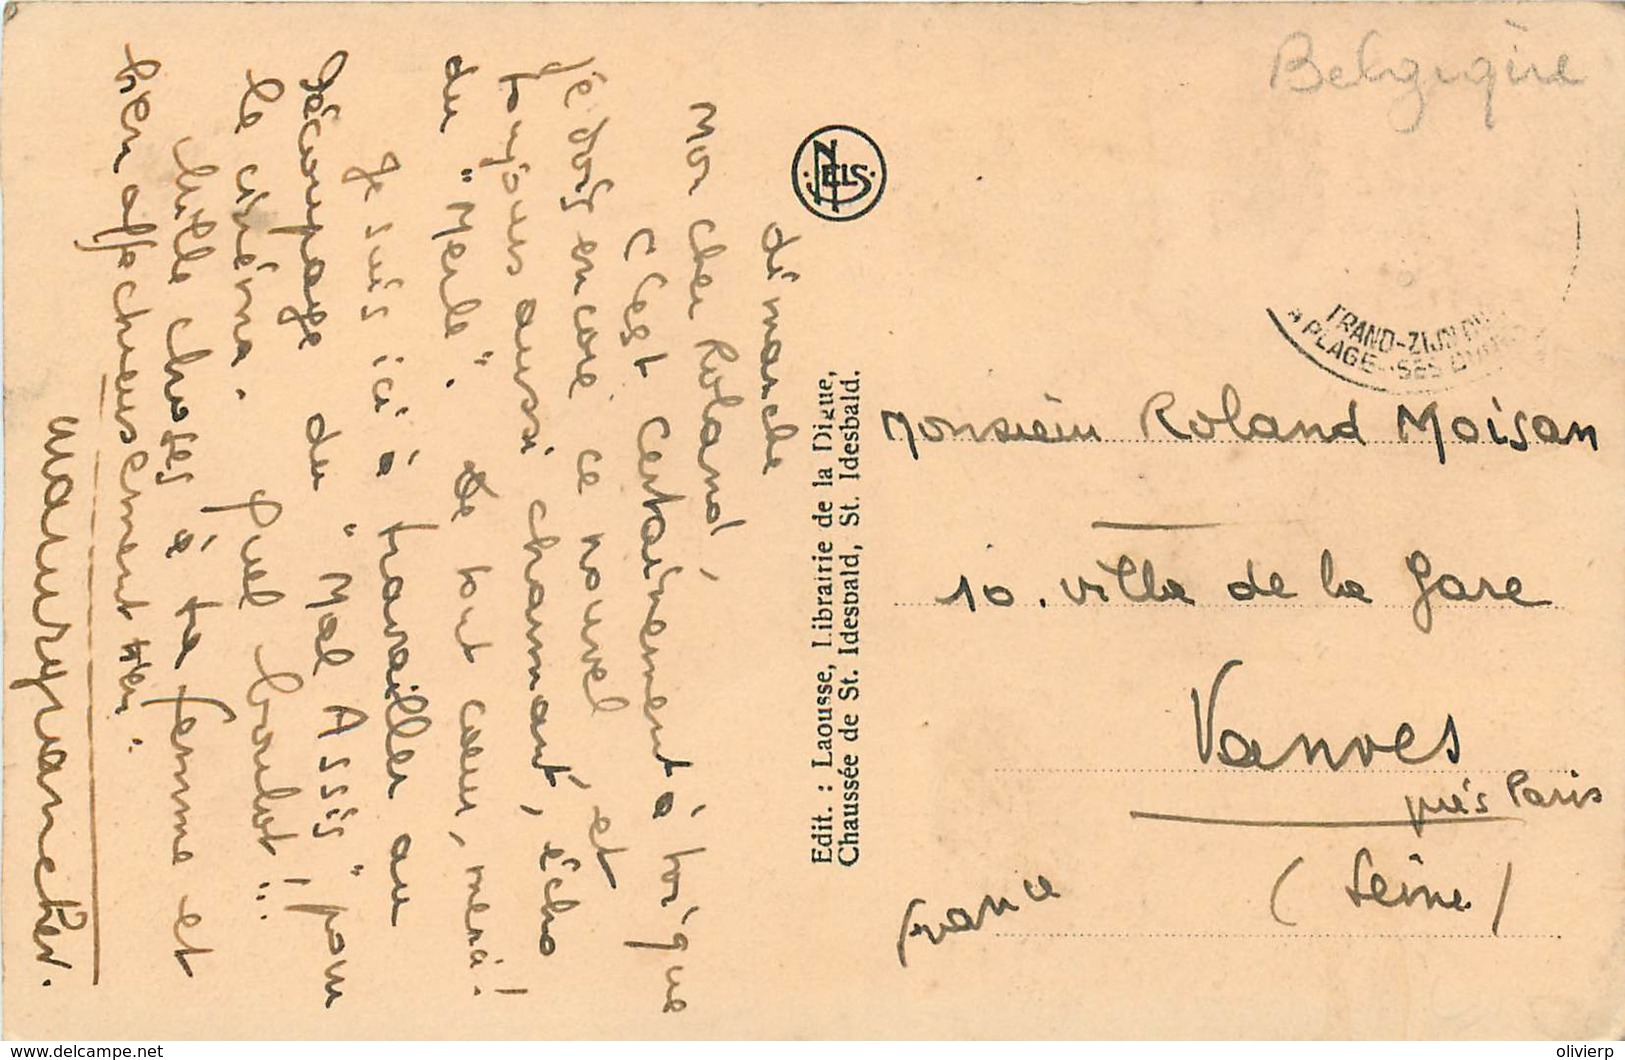 Belgique
dimanche
Mon cher Roland,
C'est certainement à toi que
je dois encore ce nouvel, et
toujours aussi charmant, écho
du "Merle". De tout cœur, merci!
Je suis ici à travailler au
découpage du "Mal Assis", pour
le cinéma. Quel boulot!...
Mille choses à ta femme et
bien affectueusement tien.
NELS
Edit. : Laousse, Librairie de la Digue,
Chaussée de St. Idesbald, St. Idesbald.
TRAND-ZIJN
A PLAGE-SES
Monsieur Roland Moisan
10. villa de la Gare
Vanves
près Paris
(Seine)
France
olivierp